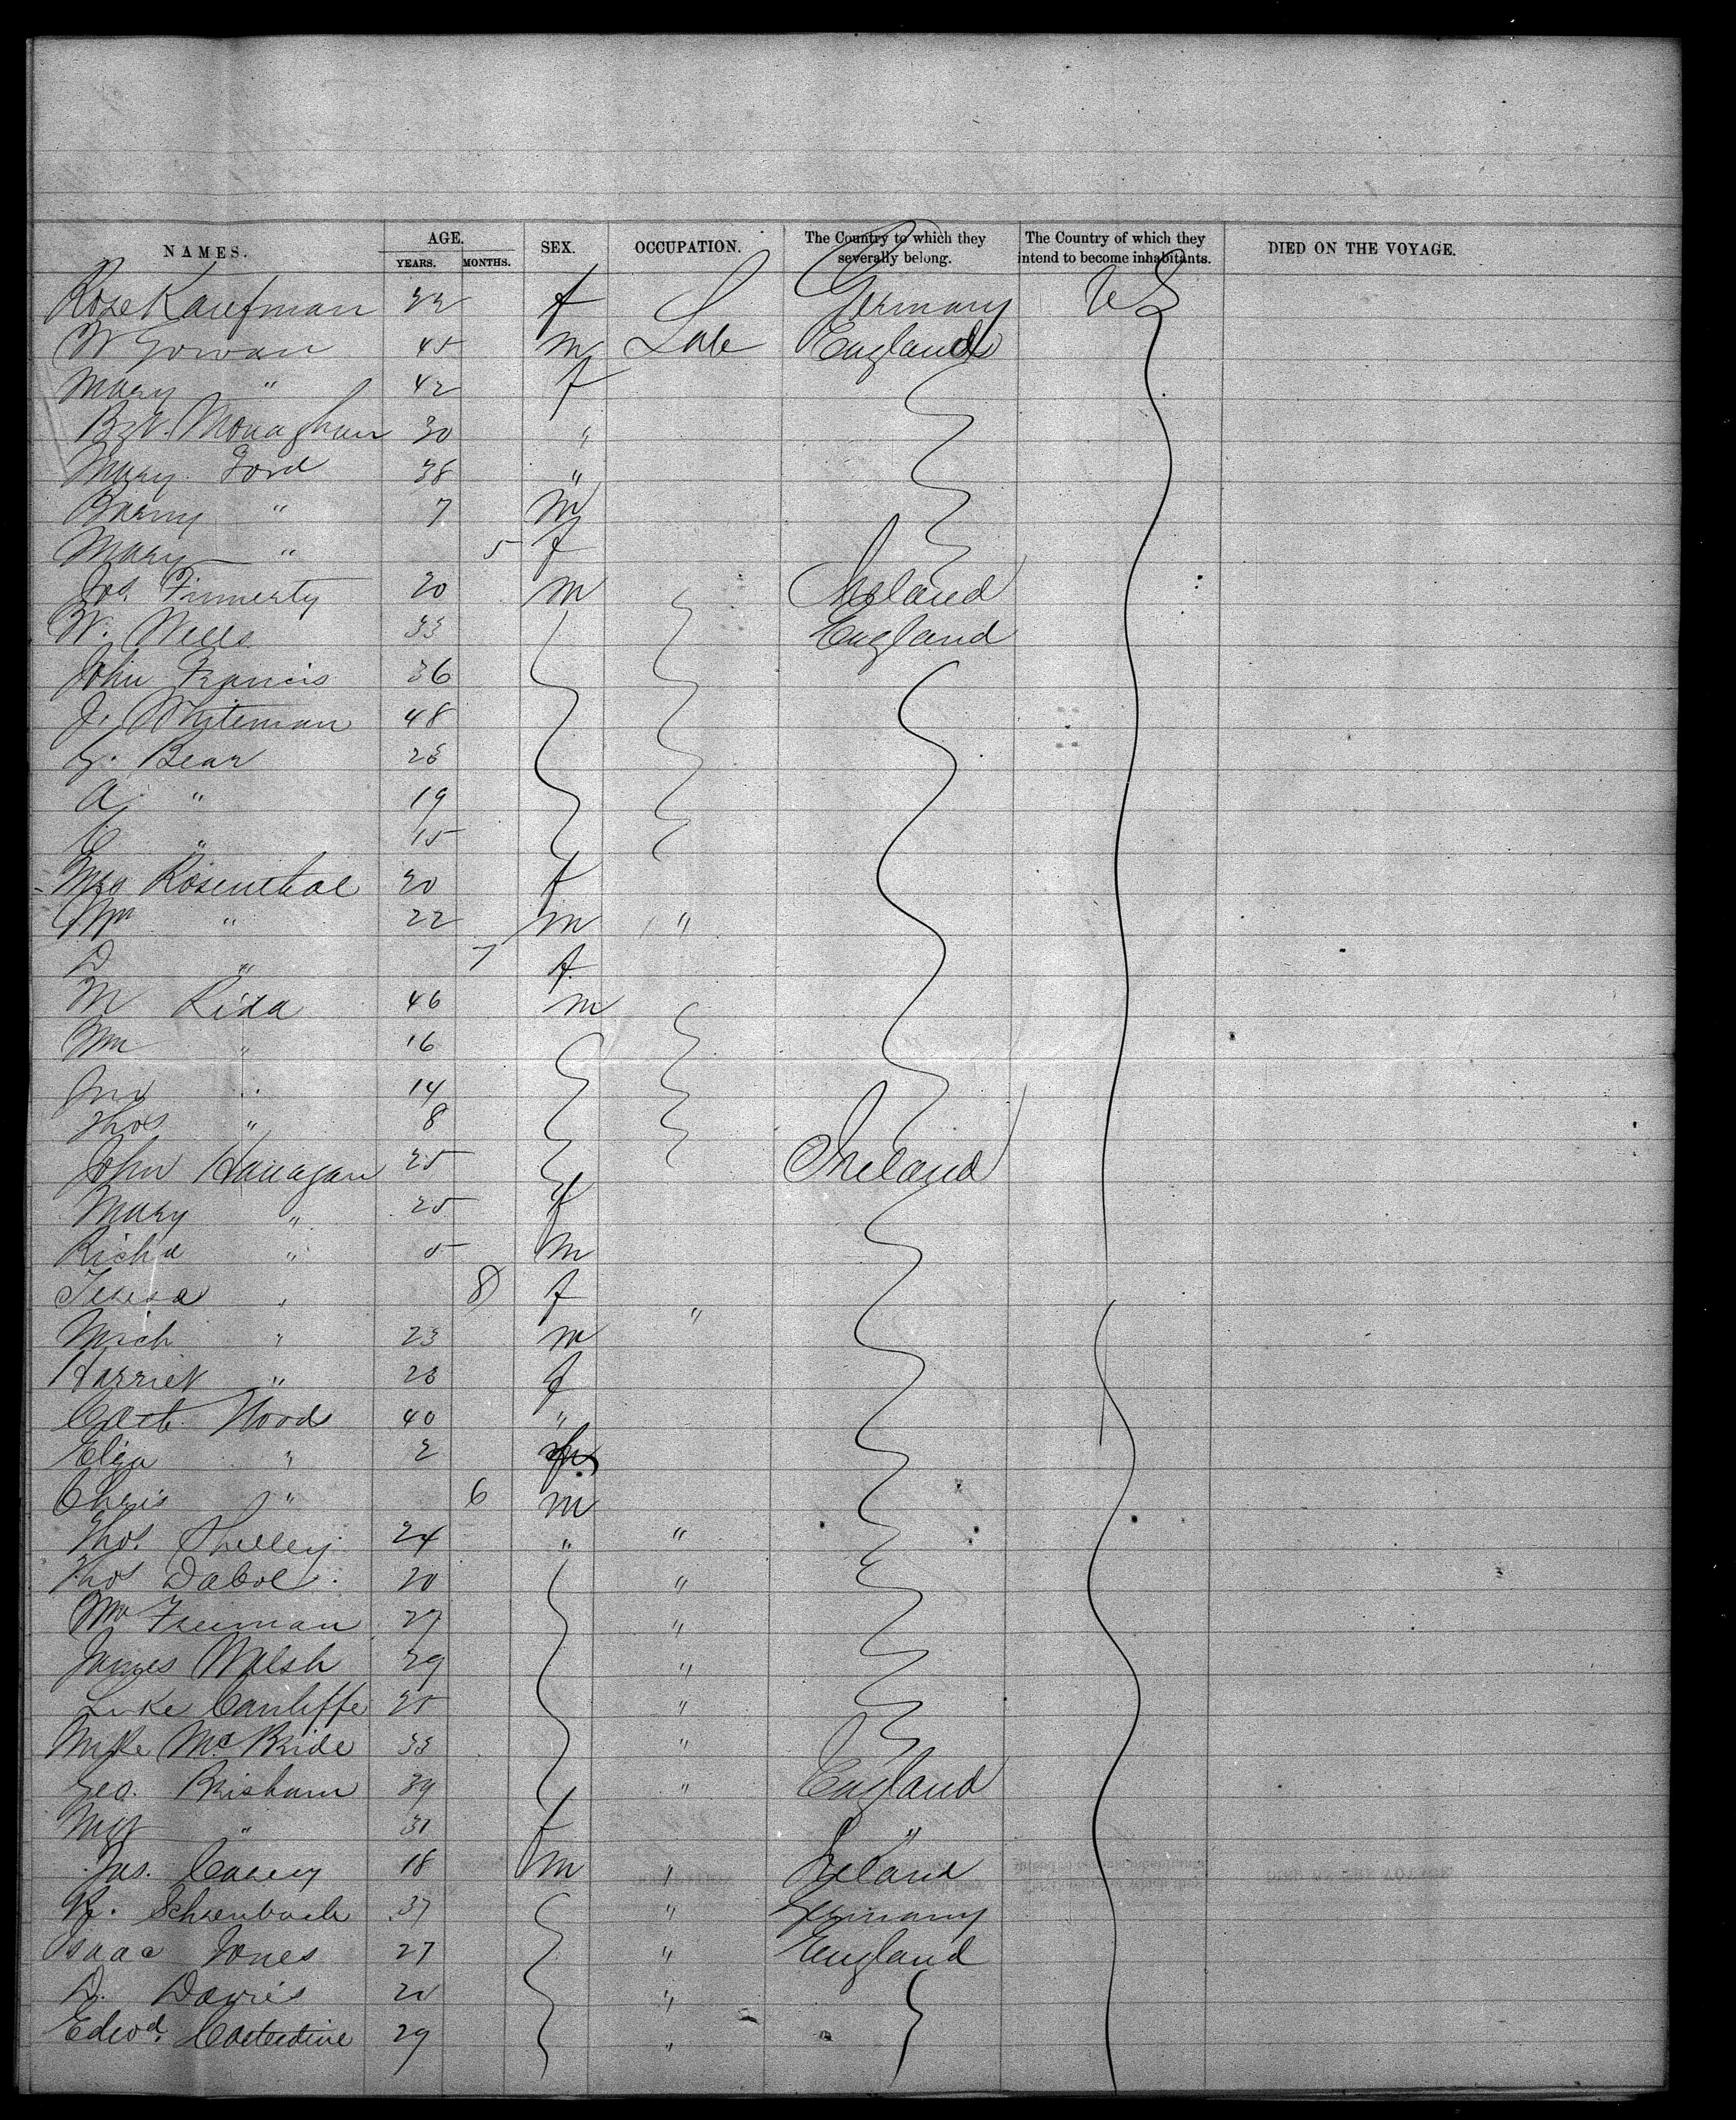 NAMES. AGE. YEARS. MONTHS. SEX. OCCUPATION. The Country to which they severally belong. The Country of which they intend to become inhabitants. DIED ON THE VOYAGE.
Rose Kaufman 22 f Germany US
W Gowan 45 m Lab England
Mary " 42 f
Bgt. Monaghan 30 "
Mary Ford 38 "
Barny " 7 m
Mary " 5 f
Jos. Finnerty 20 m Ireland
W. Wells 33 England
John Francis 36
J. Whiteman 48
G. Bear 28
A. " 19
C " 15
Mrs Rosenthal 20 f
Wm " 22 m "
D " 7 f
M Rida 46 m
Wm " 16
Jno " 14
Thos " 8
John Hanagan 25 Ireland
Mary " 25 f
Richd " 5 m
Teresa " 8 f
Mich " 23 m "
Harriet " 28 f
Cath Wood 40 "
Eliza " 2 f
Chris " 6 m
Thos. Shelley 24 " "
Thos Dabol 20 "
Wm Freeman 27 "
James Walsh 29 "
Luke Canliffe 25 "
Mike McBride 33 "
Geo. Brisham 39 " England
Mgt " 31 f "
Jas. Carey 18 m " Ireland
R. Schoenbach 37 " Germany
Isaac Jones 27 " England
D. Davies 21 "
Edwd. 29 "